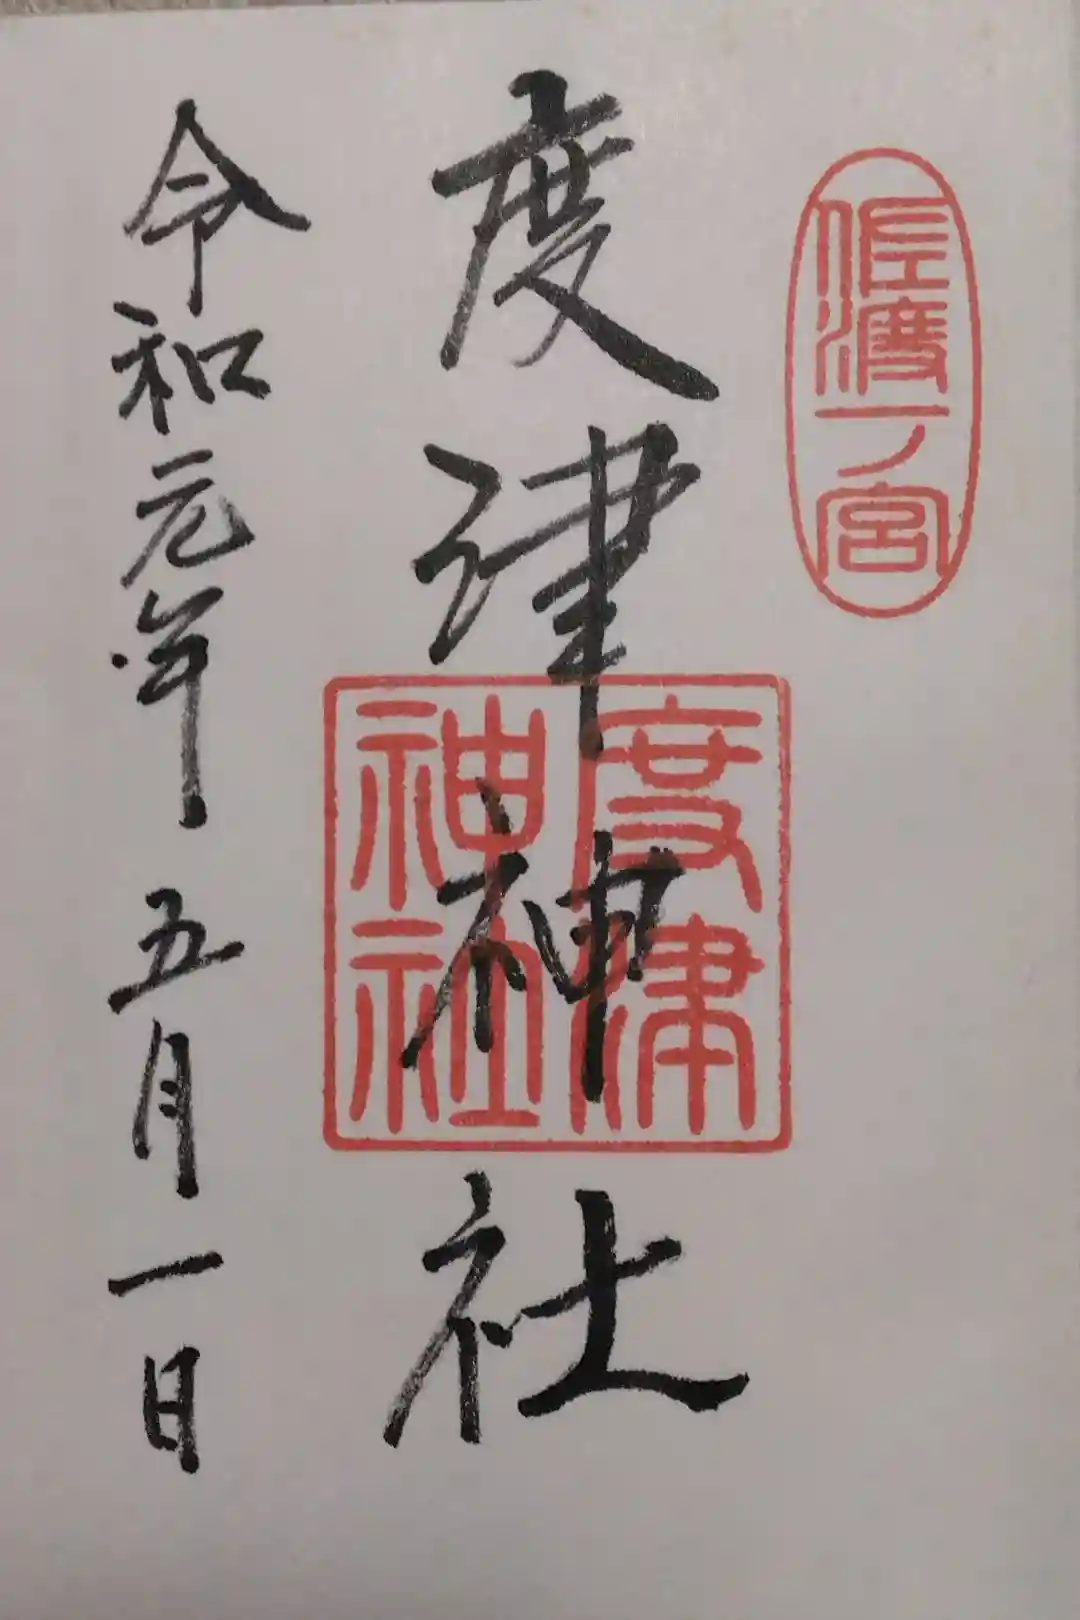 佐渡一ノ宮
度津神社
度津
神社
令和元年 五月一日